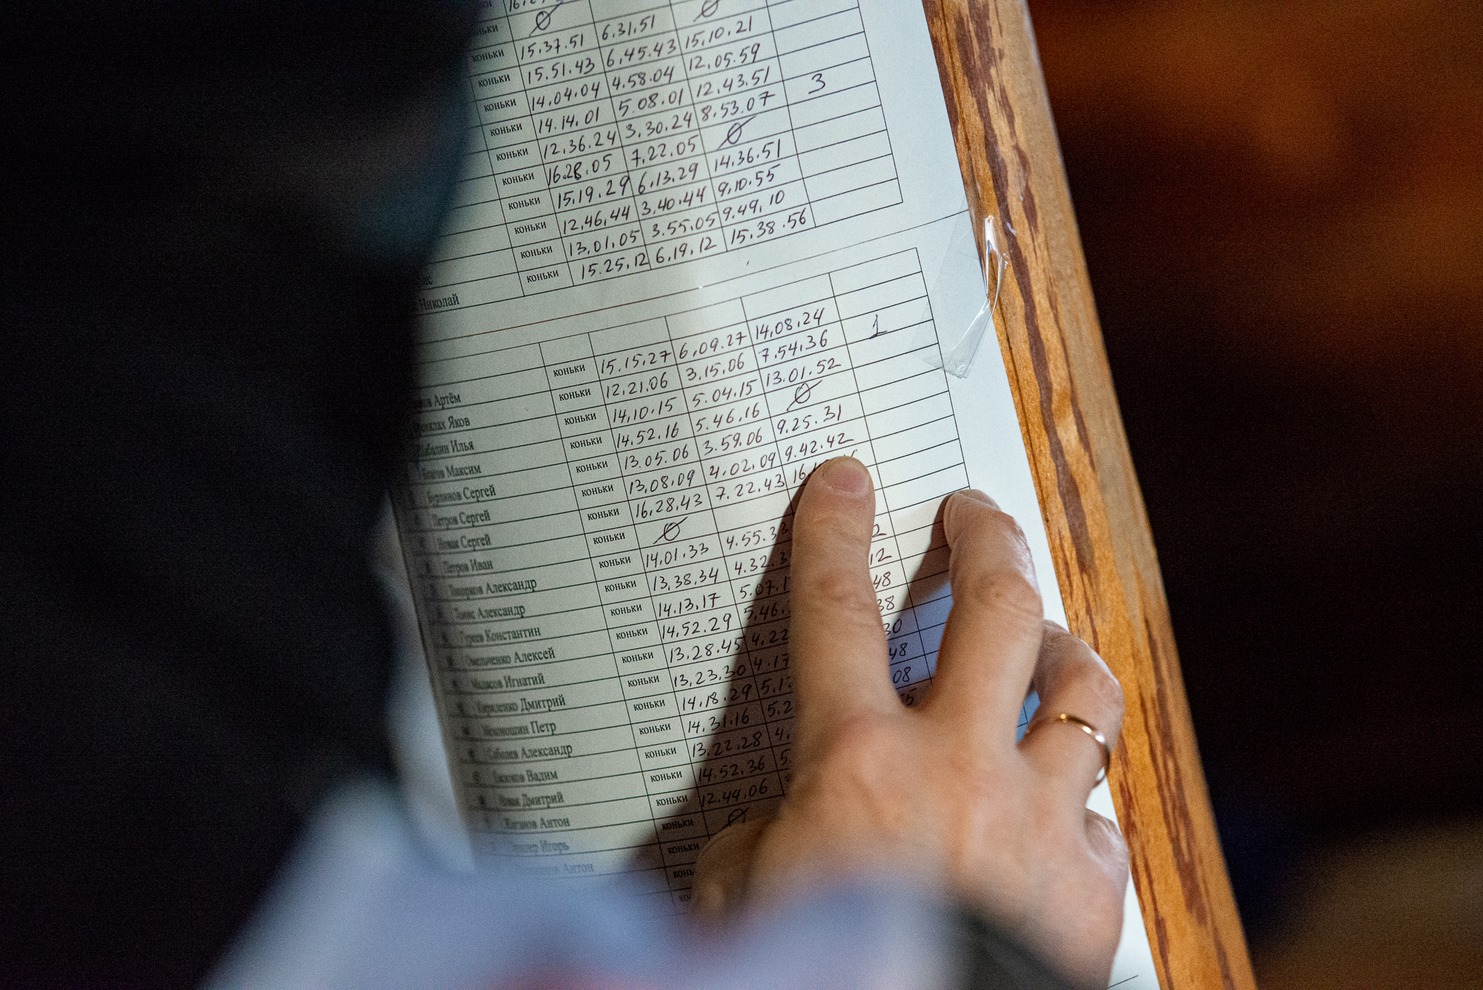 коньки
коньки Ø
коньки 15.37.51 6.31.51 Ø
коньки 15.51.43 6.45.43 15.10.21
коньки 14.04.04 4.58.04 12.05.59
коньки 14.14.01 5.08.01 12.43.51
коньки 12.36.24 3.30.24 8.53.07 3
коньки 16.28.05 7.22.05 Ø
коньки 15.19.29 6.13.29 14.36.51
коньки 12.46.44 3.40.44 9.10.55
коньки 13.01.05 3.55.05 9.49.10
Николай коньки 15.25.12 6.19.12 15.38.56
Артём коньки 15.15.27 6.09.27 14.08.24
Яков коньки 12.21.06 3.15.06 7.54.36 1
Илья коньки 14.10.15 5.04.15 13.01.52
Максим коньки 14.52.16 5.46.16 Ø
Сергей коньки 13.05.06 3.59.06 9.25.31
Петров Сергей коньки 13.08.09 4.02.09 9.42.42
Новак Сергей коньки 16.28.43 7.22.43 16.
Петров Иван коньки Ø
Топорков Александр коньки 14.01.33 4.55.3
Александр коньки 13.38.34 4.32.3 12
Гуреев Константин коньки 14.13.17 5.07.1 48
Омельченко Алексей коньки 14.52.29 5.46. 38
Игнатий коньки 13.28.45 4.22 30
Кириленко Дмитрий коньки 13.23.30 4.17 48
Петр коньки 14.18.29 5.1 08
Соболев Александр коньки 14.31.16 5.2
Вадим коньки 13.22.28 4.
Новак Дмитрий коньки 14.52.36 5.
Антон коньки 12.44.06
Игорь коньки Ø
Антон коньки